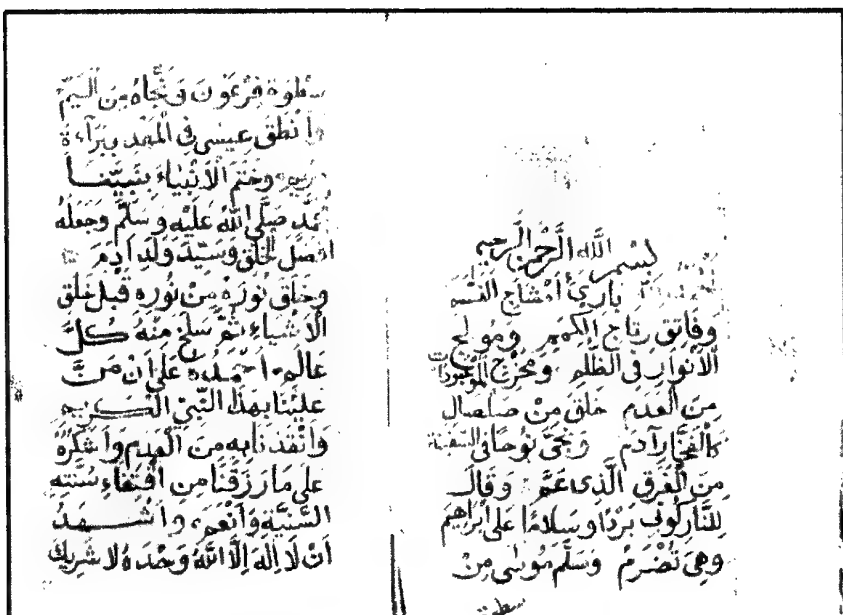 بِسْمِ اللَّهِ الرَّحْمَنِ الرَّحِيمِ
بَارِئ أَمْشَاجِ النَّسَمِ
وَفَاتِقِ رِتَاجِ الكِمَمِ وَمُولِجِ
الأَنْوَارِ فِي الظُّلَمِ وَمُخْرِجِ المَوْجُودَاتِ
مِنَ الْعَدَمِ خَلَقَ مِنْ صَلْصَالٍ
كَالْفَخَّارِ آدَمَ وَنَجَّى نُوحًا فِي السَّفِينَةِ
مِنَ الْغَرَقِ الَّذِي عَمَّ وَقَالَ
لِلنَّارِ كُونِي بَرْدًا وَسَلَامًا عَلَى إِبْرَاهِيمَ
وَهِيَ تُضْرَمُ وَسَلَّمَ مُوسَى مِنْ
سطوة
سَطْوَةِ فِرْعَوْنَ وَنَجَّاهُ مِنَ الْيَمِّ
وَأَنْطَقَ عِيسَى فِي الْمَهْدِ بِبَرَاءَةِ
وَخَتَمَ الْأَنْبِيَاءَ بِنَبِيِّنَا
صَلَّى اللهُ عَلَيْهِ وَسَلَّمَ وَجَعَلَهُ
أفْضَلَ الخَلْقِ وَسَيِّدَ وَلَدِ آدَمَ
وَخَلَقَ نُورَهُ مِنْ نُورِهِ قَبْلَ خَلْقِ
الْأَشْيَاءِ ثُمَّ سَلَخَ مِنْهُ كُلَّ
عَالَمٍ أَحْمَدُهُ عَلَى أَنْ مَنَّ
عَلَيْنَا بِهَذَا النَّبِيِّ الكَرِيمِ
وَأَنْقَذَنَا بِهِ مِنَ الْعَدَمِ وَأَشْكُرُهُ
عَلَى مَا رَزَقَنَا مِنِ اقْتِفَاءِ سُنَّتِهِ
السَّنِيَّةِ وَأَنْعَمَ وَأَشْهَدُ
أَنْ لَا إِلَهَ إِلَّا اللَّهُ وَحْدَهُ لَا شَرِيكَ